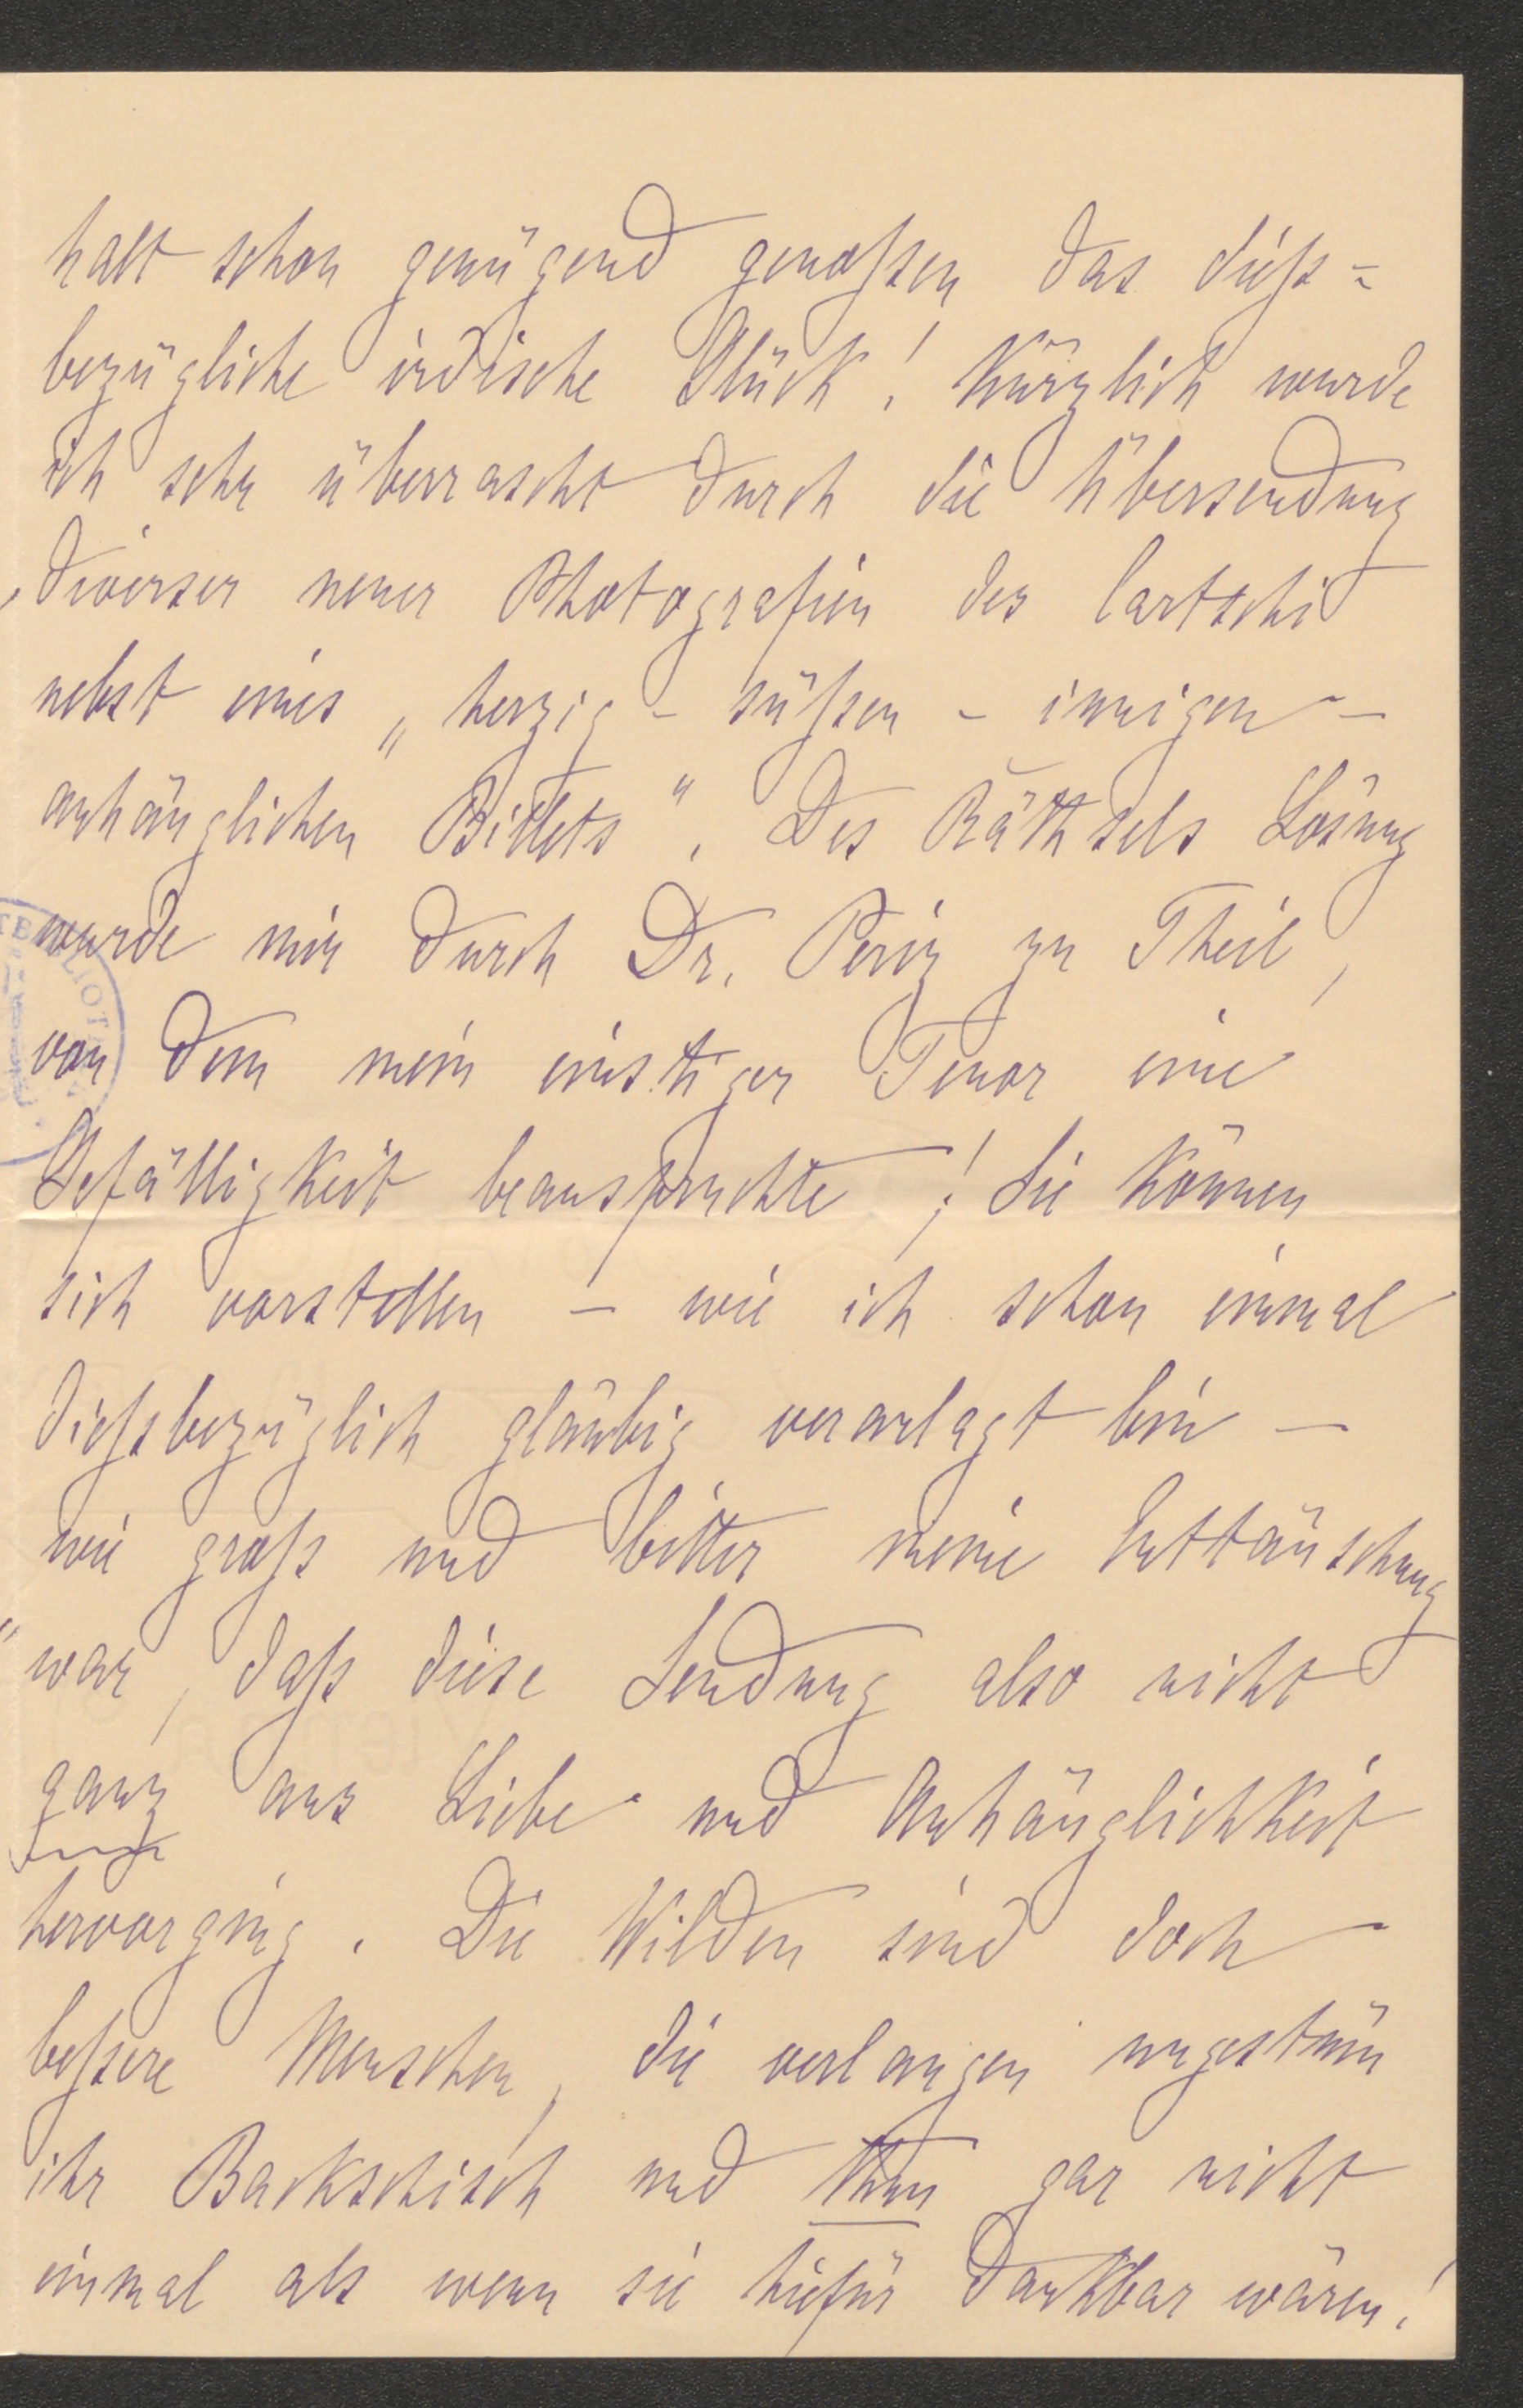 halt schon genügend genoßsen das dießs=
bezügliche irdische Glück! Kürzlich wurde
ich sehr überrascht durch die Übersendung
diverser neuer Photografien des
nebst eines „herzig - süßsen - innigen -
anhänglichen Billets“. Des Räthsels Lösung
wurde mir durch Dr. zu Theil,
von dem mein einstiger Tenor eine
Gefälligkeit beanspruchte! Sie können
sich vorstellen – wie ich schon einmal
dießsbezüglich gläubig veranlagt bin –
wie groß und bitter meine Enttäuschung
war, daß diese Sendung also nicht
ganz aus Liebe und Anhänglichkeit
hervorging. Die Wilden sind doch
beßsere Menschen, die verlangen ungestüm
ihr Backschisch und thun gar nicht
einmal als wenn sie hiefür dankbar wären!